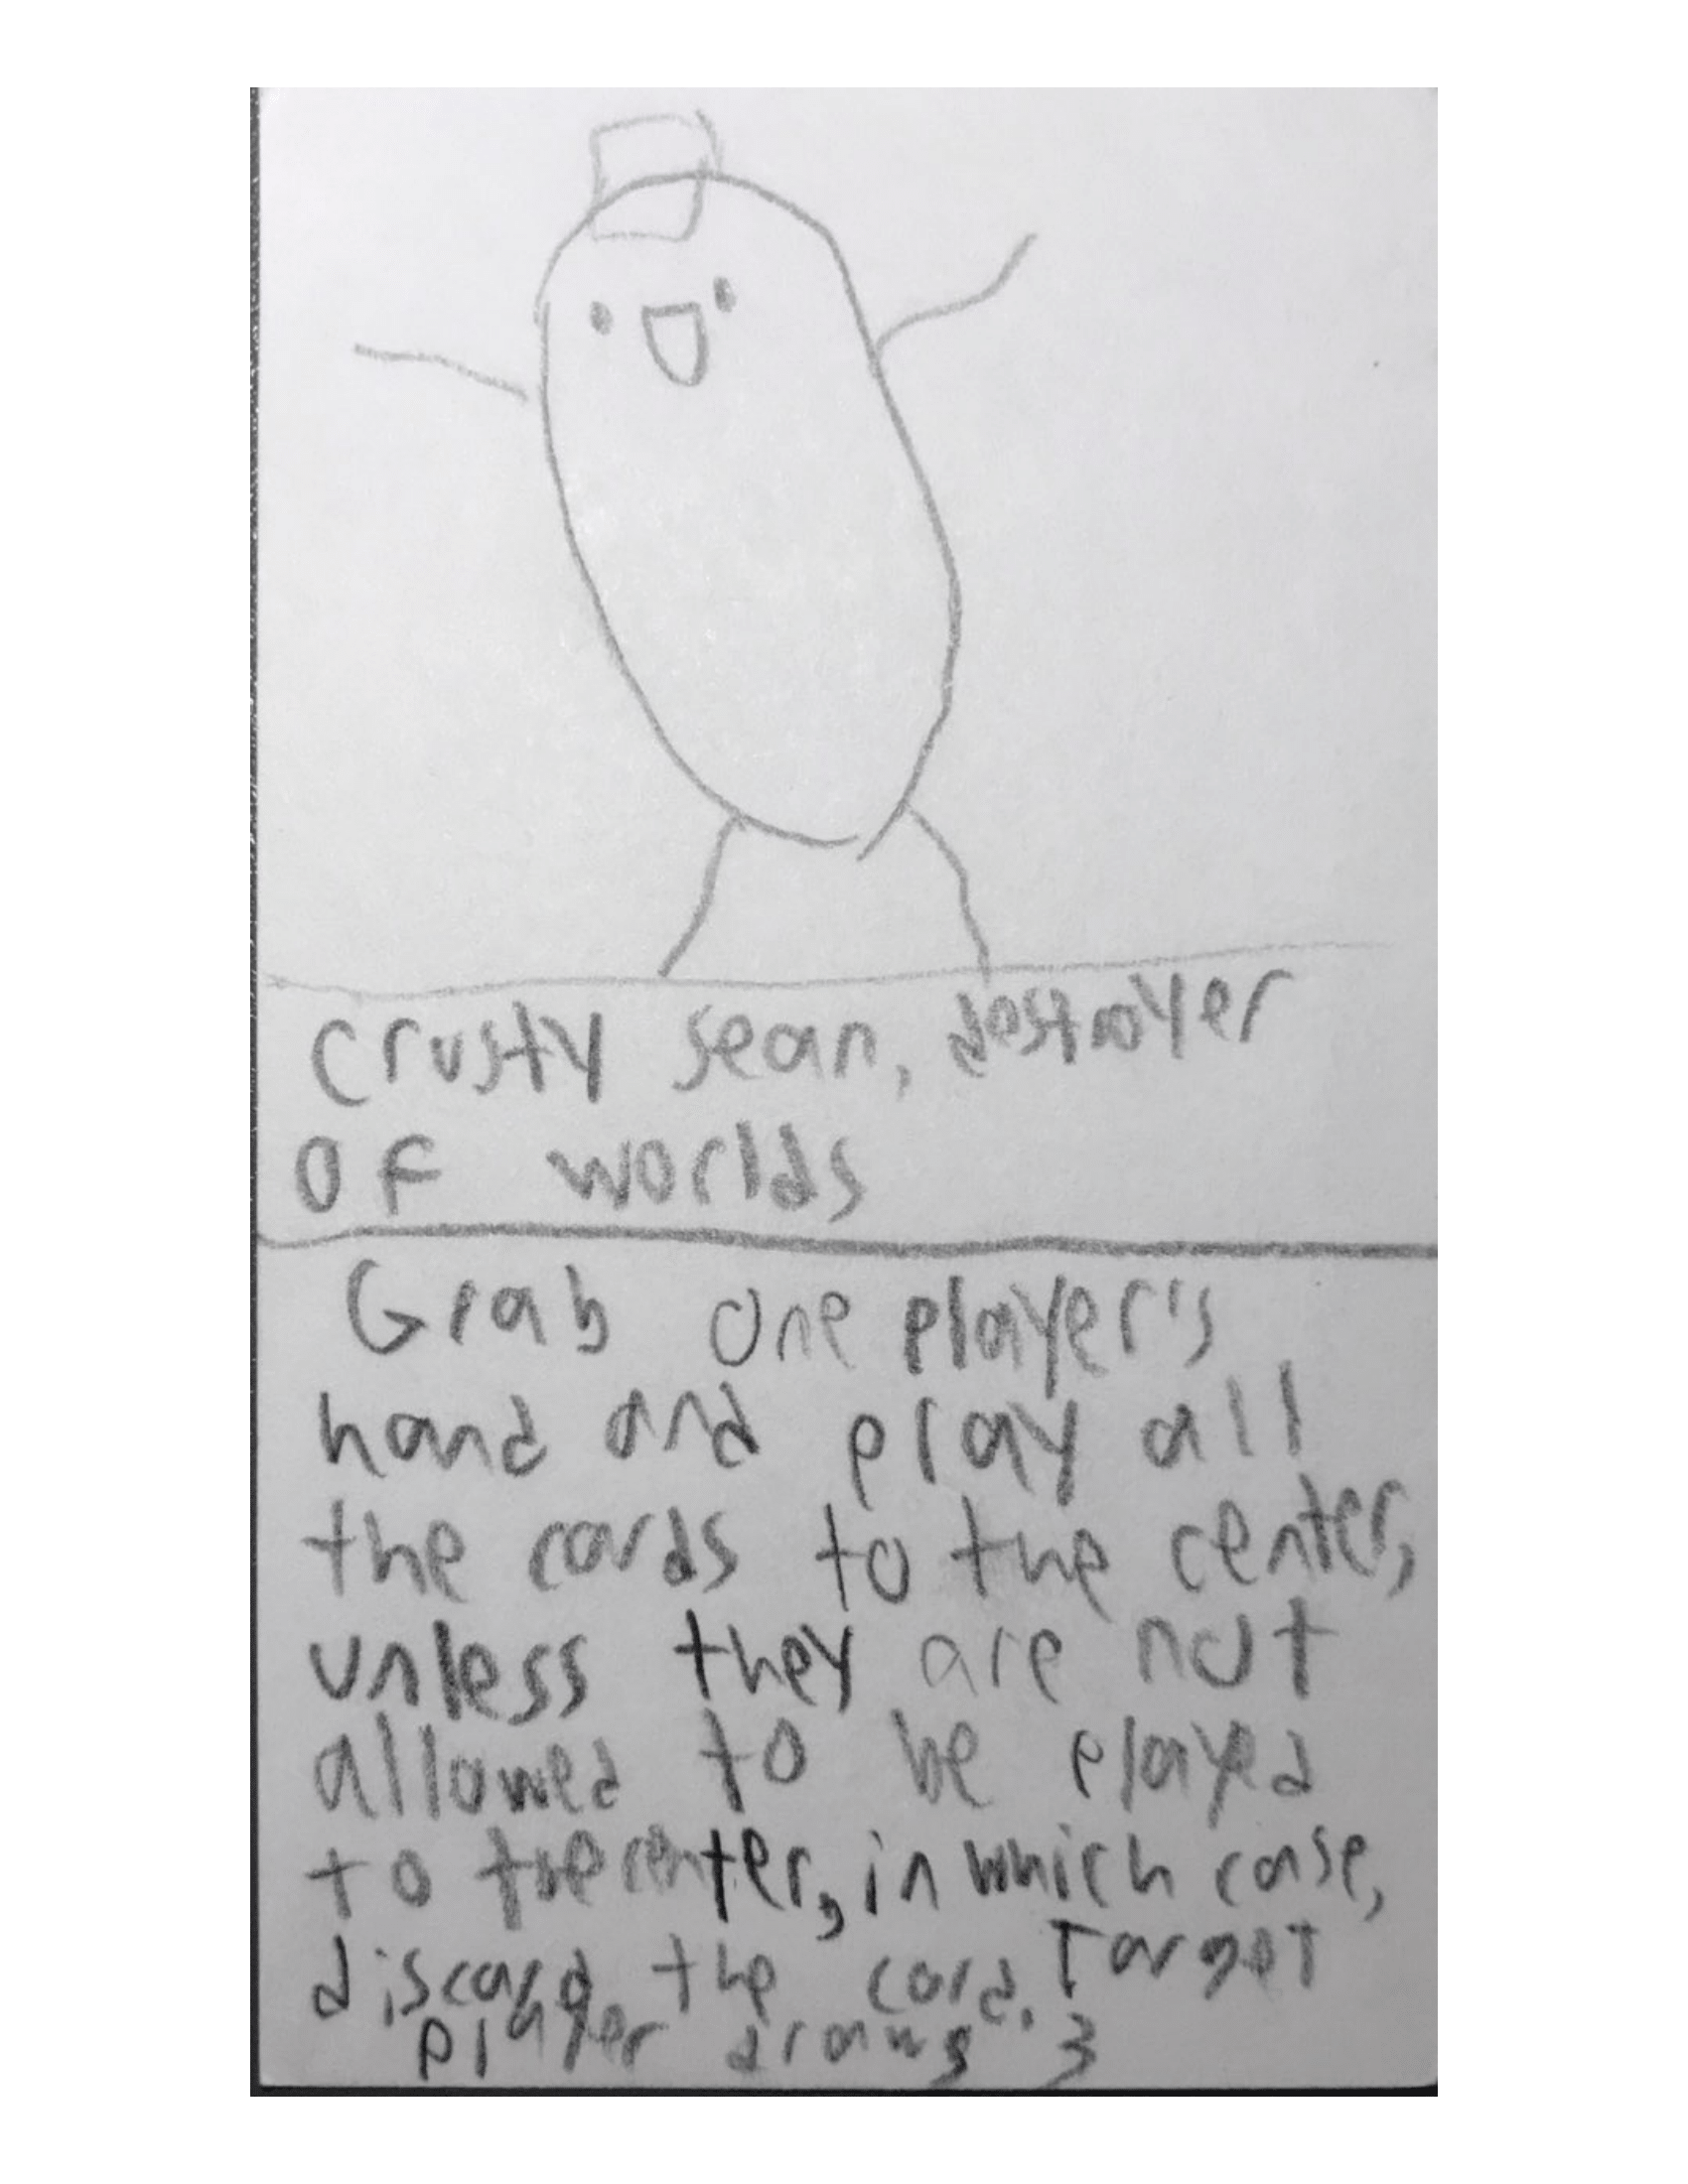 Crusty sean, destroyer
of worlds
Grab one player's
hand and play all
the cards to the center,
unless they are not
allowed to be played
to the center, in which case,
discard the card. Target
player draws 3